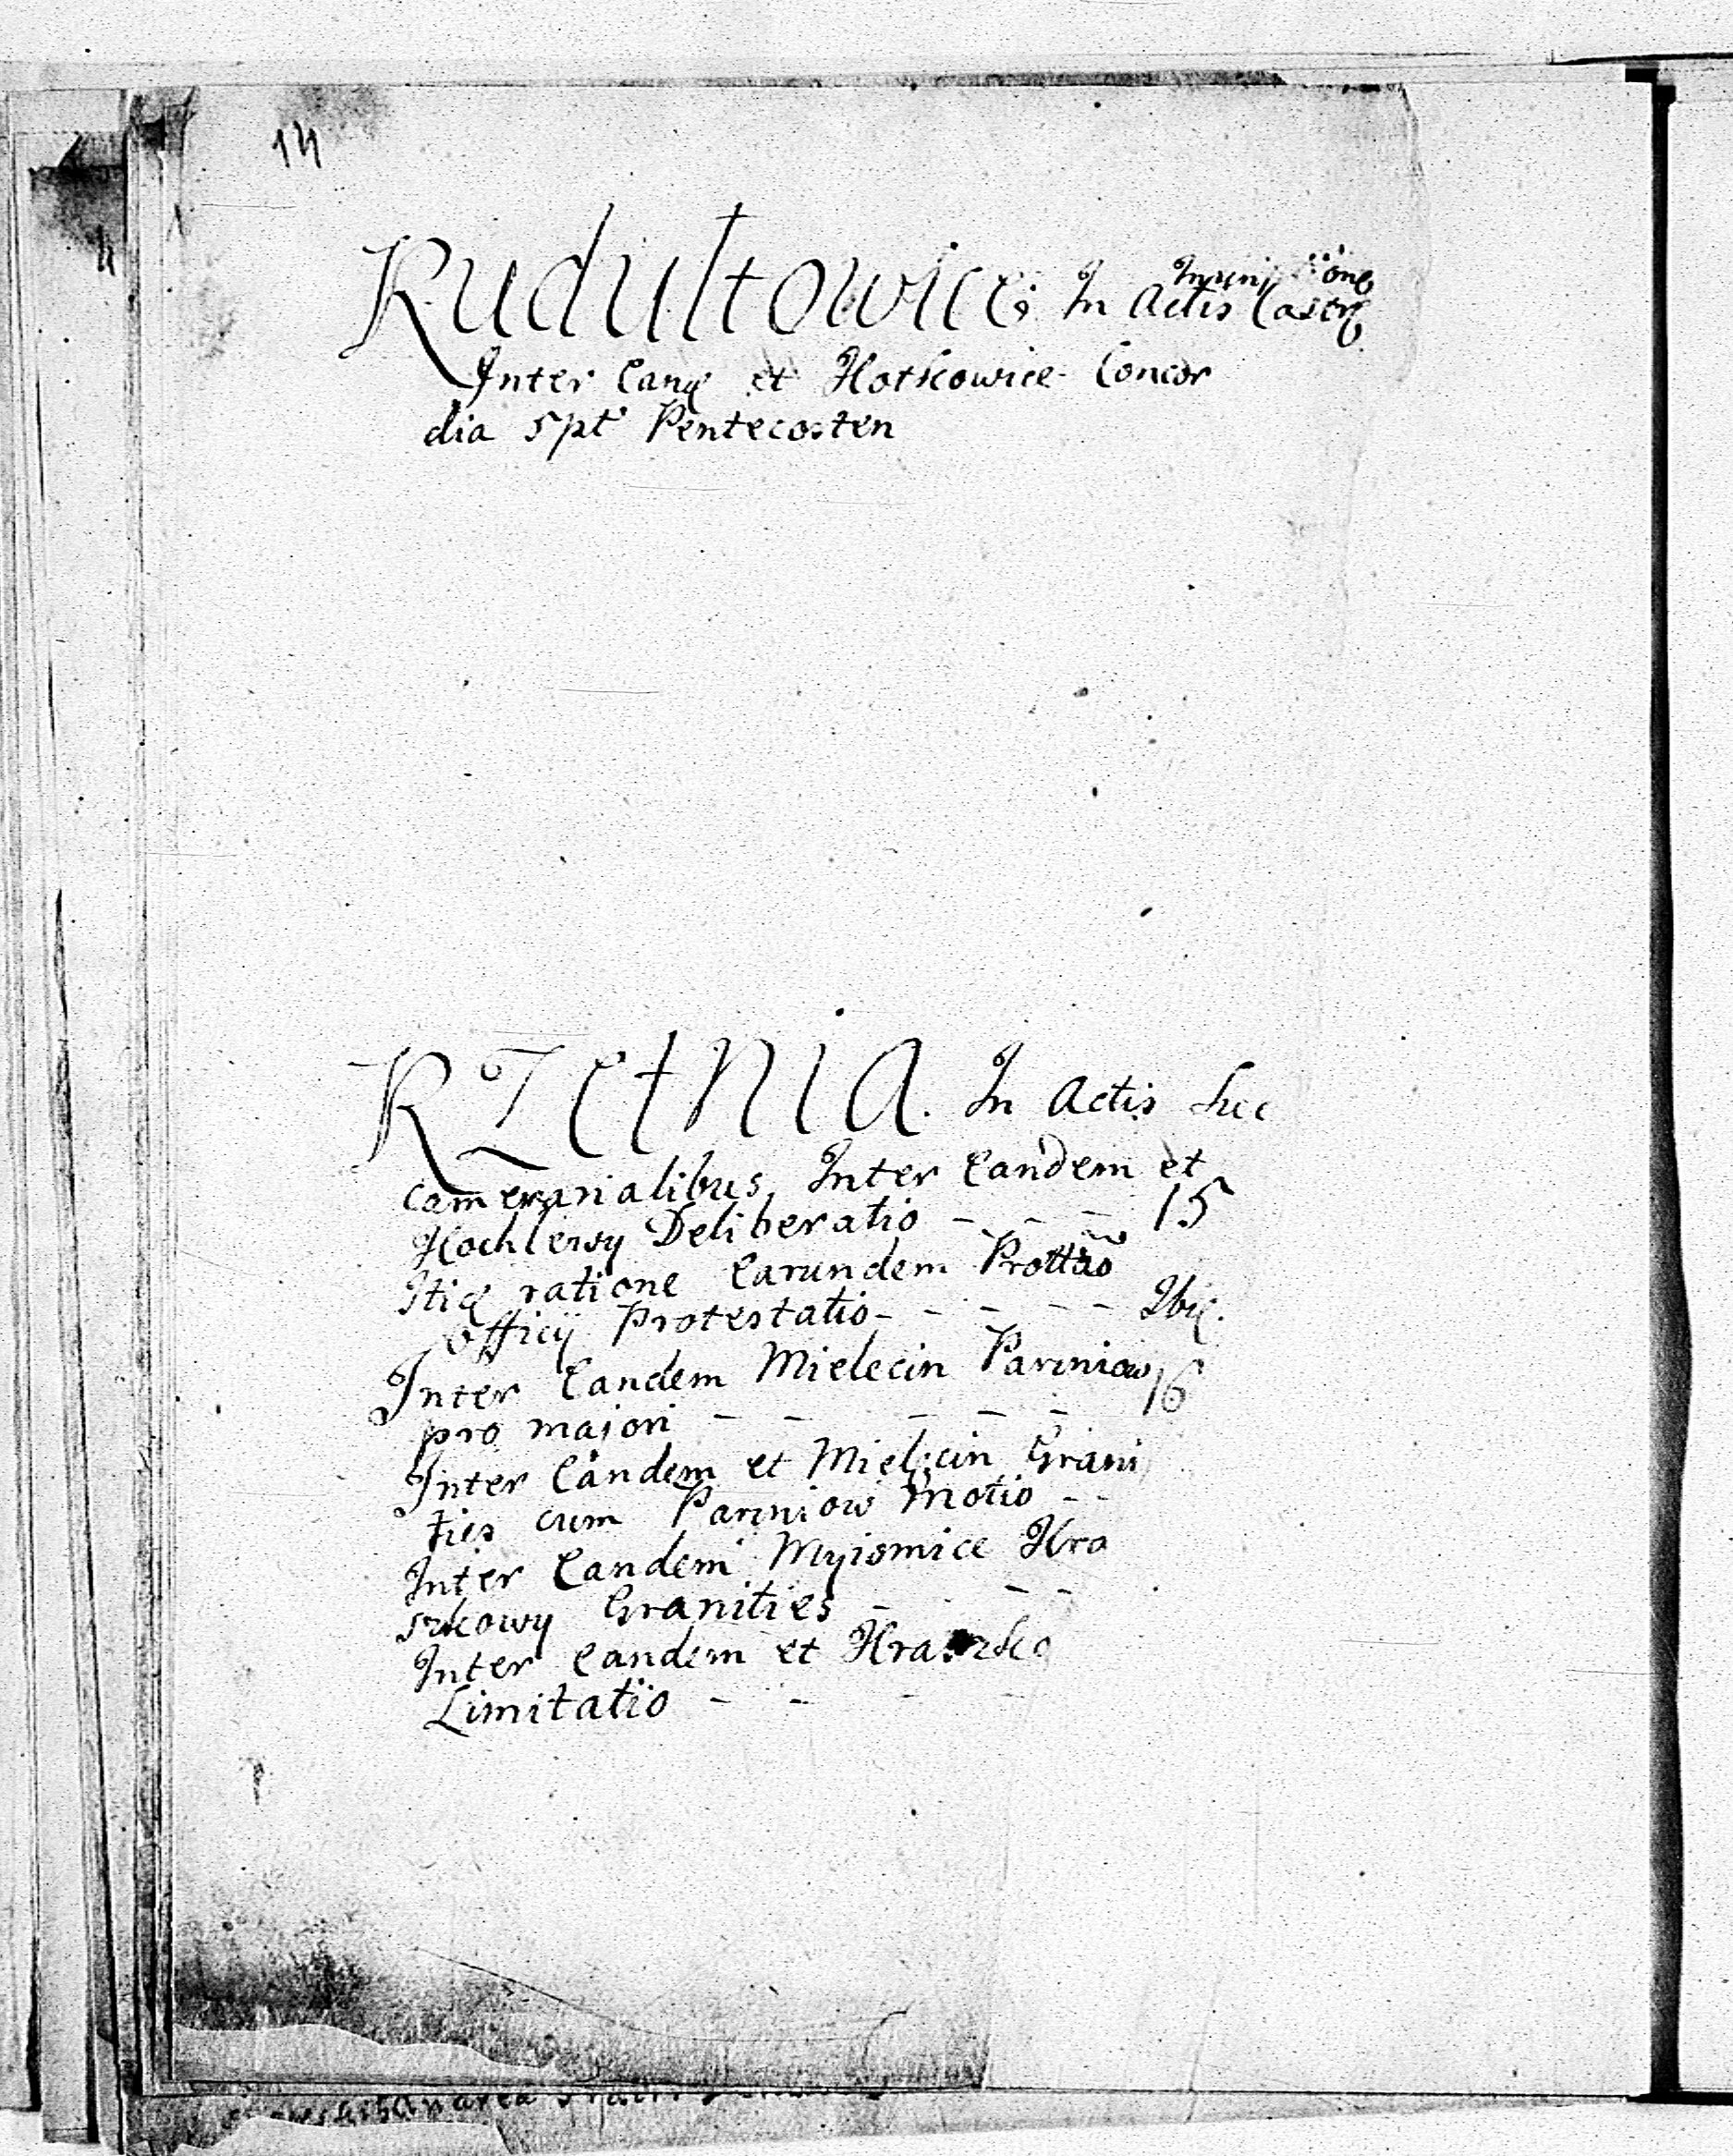 14
Rudultowice In Actis Castr
Inter Eand et Hotkowice Concor
dia spt Pentecosten
RZetnia. In Actis Suc
camerarialibus Inter Eandem et
Hochlewy Deliberatio - - - 15
Itid ratione Earundem Prottao
officÿ Protestatio - - - - - Ibid.
Inter Eandem Mielecin Parzniow
pro majori - - - - - 16
Inter Eandem et Mielecin Grani
ties cum Parzniow Motio - -
Inter Eandem Myiomice Kra
szkowy Granities - - -
Inter Eandem et
Limitatio - - -